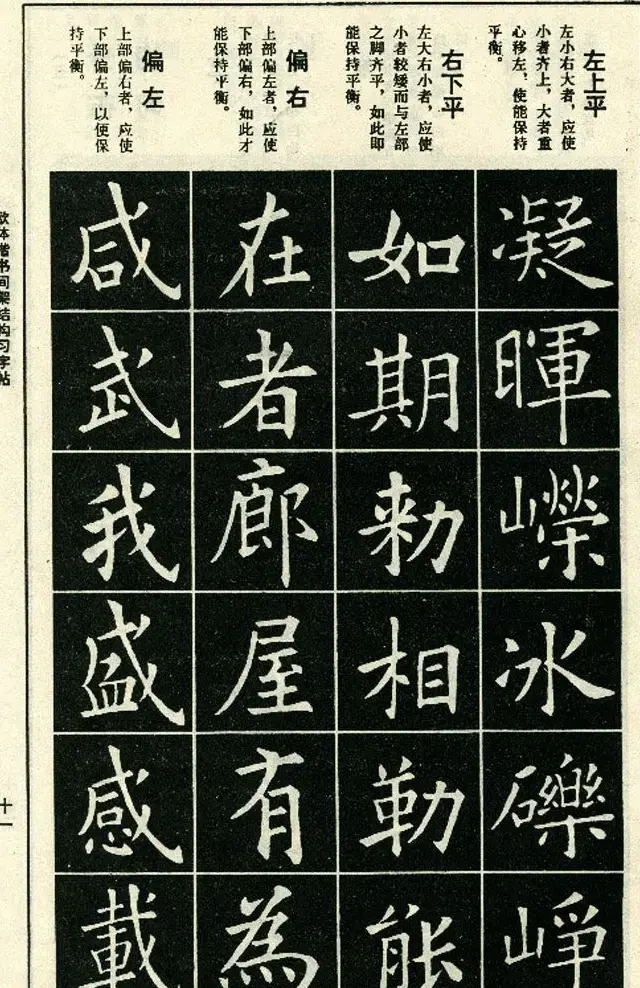 左上平
左小右大者，应使
小者齐上，大者重
心移左，使能保持
平衡。
凝
暉
嶸
冰
礫
崢
右下平
左大右小者，应使
小者较矮而与左部
之脚齐平，如此即
能保持平衡。
如
期
勅
相
勒
能
偏右
上部偏左者，应使
下部偏右，如此才
能保持平衡。
在
者
廊
屋
有
為
偏左
上部偏右者，应使
下部偏左，以便保
持平衡。
咸
武
我
盛
感
載
欧体楷书间架结构习字帖
十一